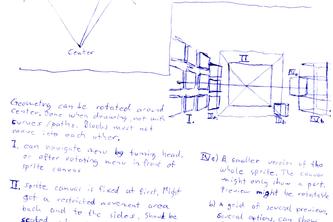 Center
II
I.
Geometry can be rotated around
center. Done when drawing, not with
curves/paths. Blocks must not
move into each other.
I. can navigate menu by turning head,
or after rotating menu in front of
sprite canvas
II. sprite canvas is fixed at first. Might
get a restricted movement area
back and to the sides. Should be
a) A smaller version of the
whole sprite. The canvas
might only show a part.
Preview might be
b) A grid of several
several options, can show